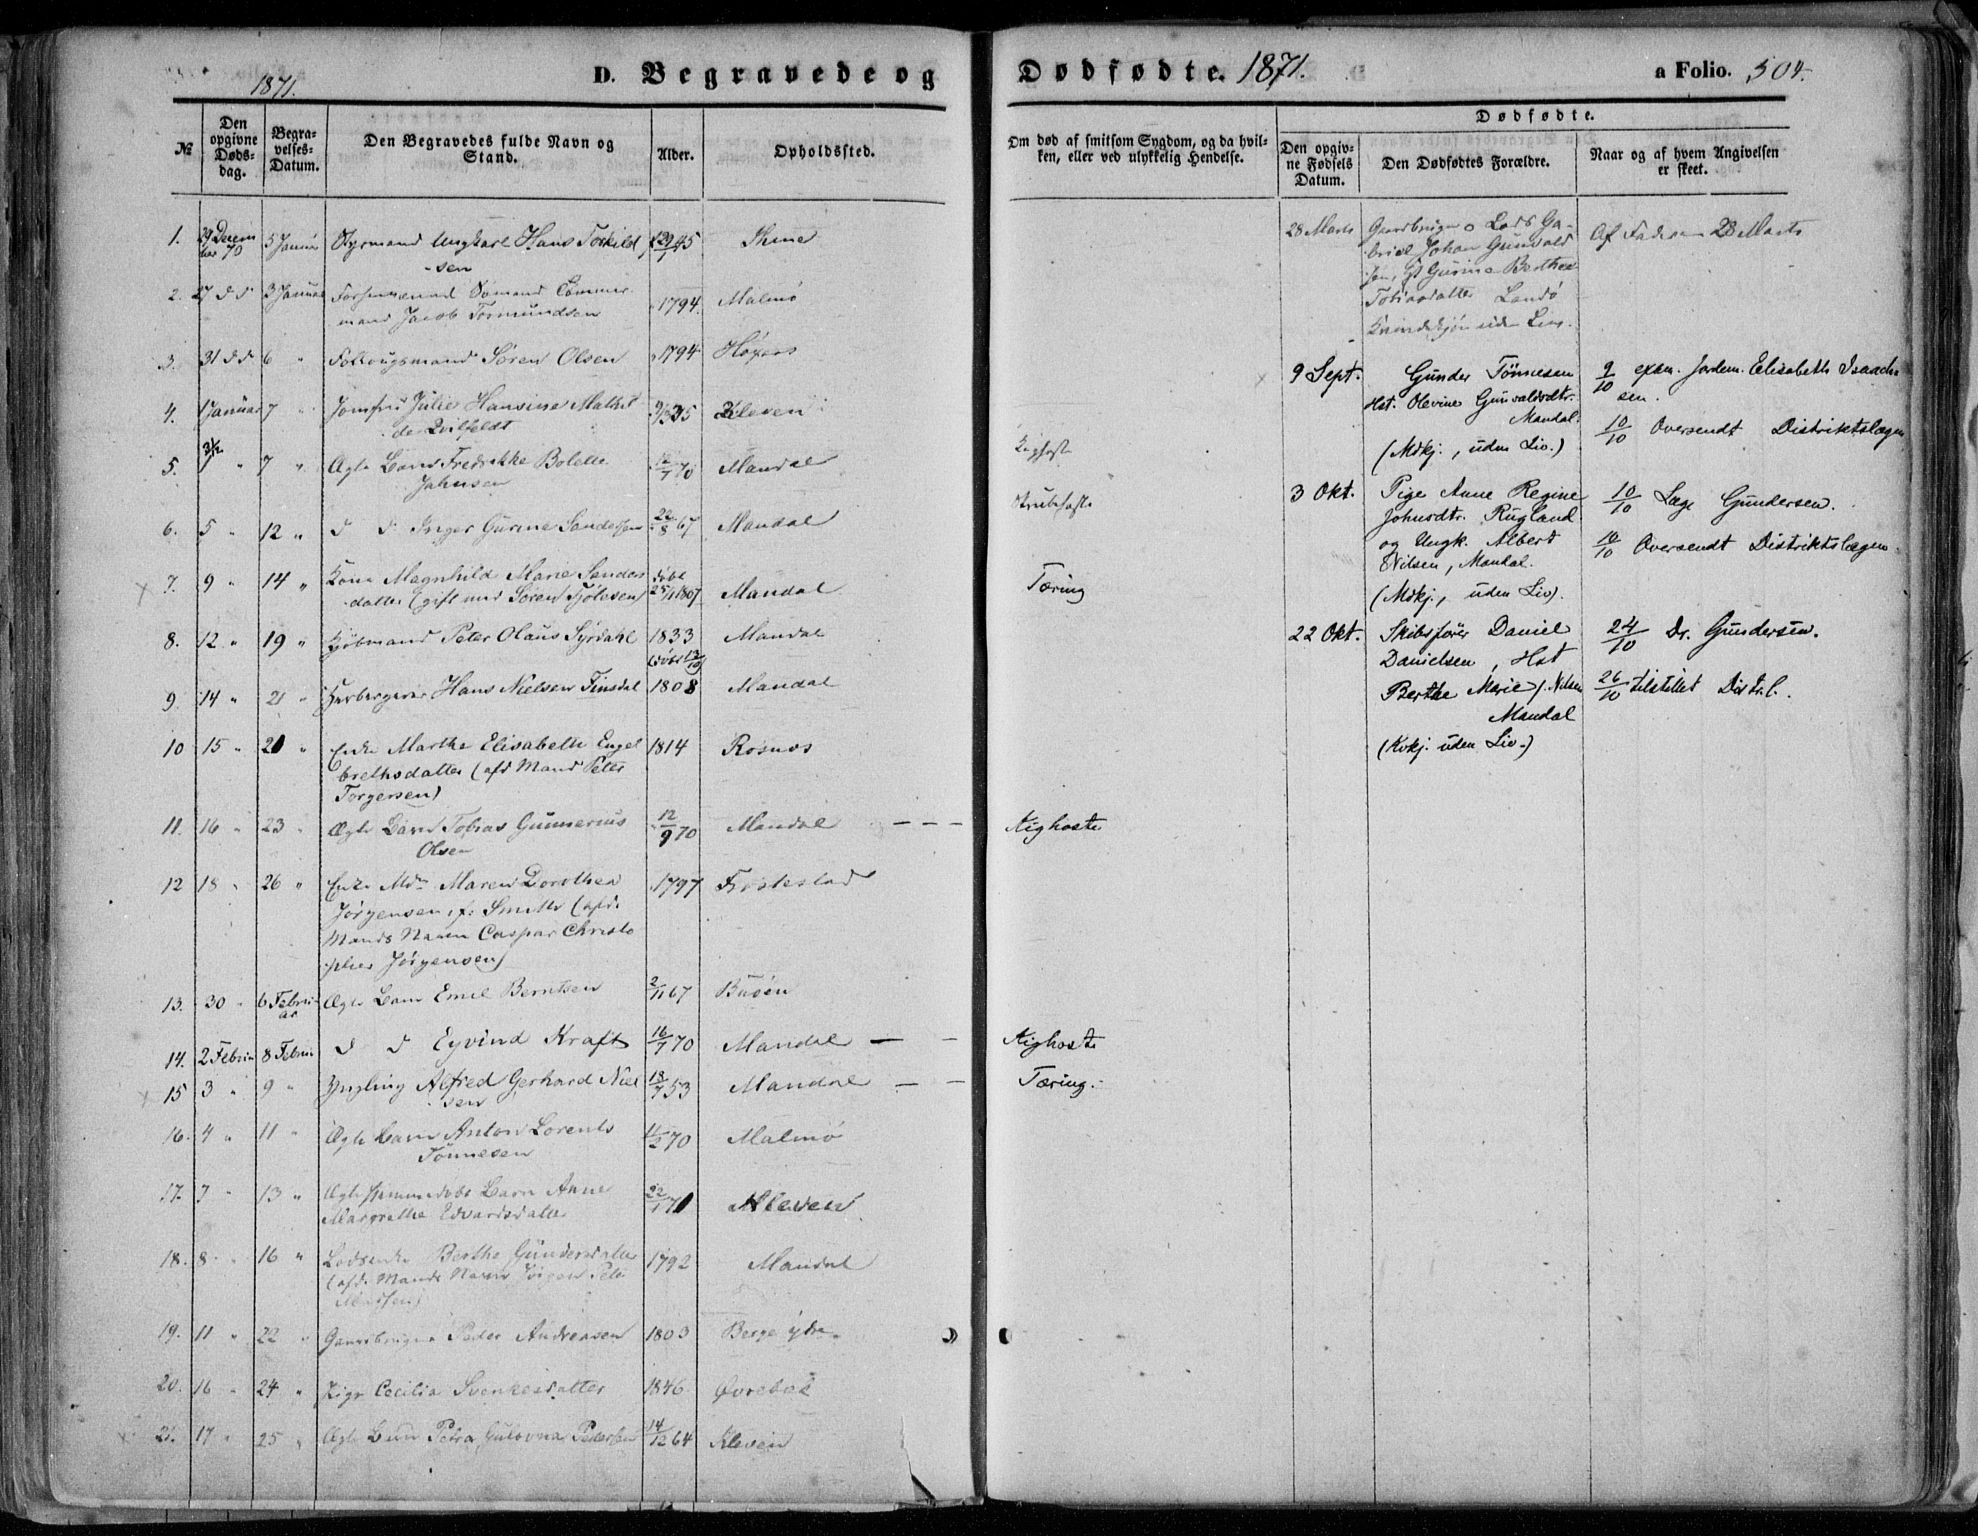 1871.
D. Begravede og Dødfødte. 1871. a Folio. 504.
№
Den opgivne Døds-dag.
Begra-velses-Datum.
Den Begravedes fulde Navn og Stand.
Alder.
Opholdssted.
Om død af smitsom Sygdom, og da hvil-
ken, eller ved ulykkelig Hendelse.
Dødfødte.
Den opgiv-
ne Fødsels
Datum.
Den Dødfødtes Forældre.
Naar og af hvem Angivelsen
er skeet.
1. 29 Decem 5 Januar Styrmand Ungkarl Hans Torkild 45
ber 70 sen
2. 27 d d 3 Januar Sømand
mand Jacob Tormundsen 1794. Malmø
3. 31 d d 6 " Søren Olsen 1794
4. 1 Januar 7 " Jomfru Julie Hansine Mathil Kleven
de Qvilfeldt
5. 7 " Ægte Barn Fredrikke Bolette 70 Mandal
Jahnsen
6. 5 " 12 " d d Inger Gurine Sandersen 22/8 67 Mandal
7. 9 " 14 " Kone Magnhild Marie Sanders døbt
datter (gift med Søren Fjølesen) 25/11 1807 Mandal Tæring
8. 12 " 19 " Kjøbmand Peter Olaus Syrdahl 1833 Mandal
9 14 " 21 " Hans Nielsen Finsdal 1808 Mandal
10 15 " 21 " Enke Marthe Elisabeth Engel 1814 Rosnes
brethsdatter (afd Mand Peter
Torgersen)
11. 16 " 23 " Ægte Barn Tobias Gunnerius 12/9 70 Mandal - - - Kighoste
Olsen
12 18 " 26 " Enke Mdm Maren Dorothea 1797
Jørgensen f. Smith (afd.
Mands Navn Caspar Christo
pher Jørgensen)
13. 30 " 6 Febru Ægte Barn Emil Berntsen 2/11 67 Buøen
ar
14. 2 Februar 8 Februar d d Eyvind Kraft 16/7 70 Mandal - - Kighoste
15 3 " 9 " Yngling Alfred Gerhard Niel 18/7 53 Mandal - - Tæring.
sen
16. 4 " 11 " Ægte Barn Anton Lorents 70 Malmø
Tönnesen
17. 7 " 13 " Ægte hjemmedøbt Barn Anne 22/1 71 Kleven
Margrethe Edvardsdatter
18. 8 " 16 " Lodsenke Berthe Gundersdatter 1792 Mandal
(afd. Mands Navn Jørgen Peter
19. 11 " 22 " Gaardbruger Peder Andreasen 1803 Berge ydre
20. 16 " 24 " Pige Cecilia Svenkesdatter 1846 Øvrebø
21. 17 " 25 " Ægte Barn Petra Gulovna Pedersen 14/12 64 Kleven
28 Marts Gaardbruger Lars Ga-
briel Johan Gunvald
sen, Gurine Berthea
Tobiasdatter Landø
Kvindekjøn uden Liv.
Af Faderen 28 Marts
9 Sept. Gunder Tönnesen
Hst. Olevine Gunvaldsdtr.
Mandal.
(Mdkj., uden Liv.)
9/10 exam. Jordem. Elisabeth Isaach-
sen.
10/10 Oversendt Distriktslægen
3 Okt. Pige Anne Regine
Johnsdtr. Rugland
og Ungk. Albert
Nilsen, Mandal.
(Mdkj., uden Liv).
10/10 Læge Gundersen.
10/10 Oversendt Distriktslægen.
22 Okt. Skibsfører Daniel
Danielsen, Hst
Berthe Marie f. Nilsen
Mandal
(Kvkj. uden Liv.)
24/10 Dr. Gundersen.
26/10 tilstillet Distr.l.